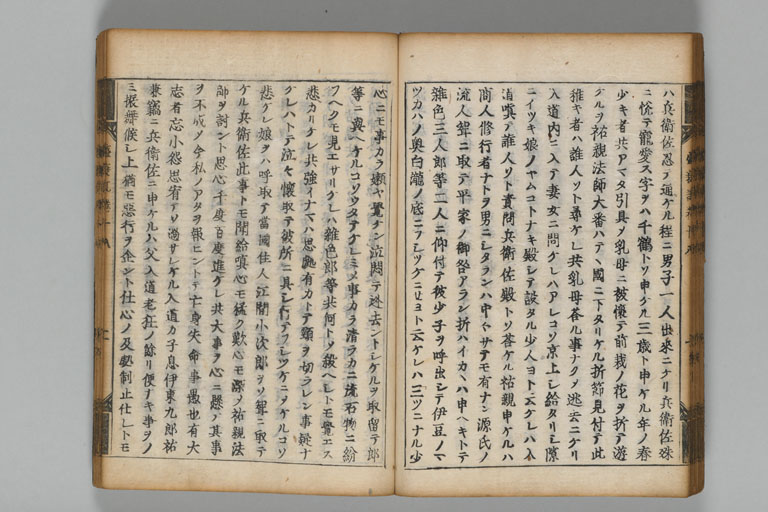 ハ兵衛佐忍テ通ケル程ニ男子一人出来ニケリ兵衛佐殊
ニ悦テ寵愛ス字ヲハ千鶴トソ申ケル三歳ト申ケル年ノ春
少キ者共アマタ引具メ乳母ニ被懐テ前栽ノ花ヲ折テ遊
ケルヲ祐親法師大番ハテヽ國ニ下タリケル折節見付テ此
稚キ者ハ誰人ソト尋ケレ共乳母答ル事ナクメ逃去ニケリ
入道内ニ入テ妻女ニ問ケレハアレコソ京上シ給タリシ隙
ニイツキ娘ノヤムコトナキ殿シテ設タル少人ヨト云ケレハ入
道嗔テ誰人ソト責問兵衛佐殿トソ答ケル祐親申ケルハ
商人修行者ナトヲ男ニシタランハ中々サテモ有ナン源氏ノ
流人聟ニ取テ平家ノ御咎アラン折ハイカヽハ申ヘキトテ
雑色三人郎等二人ニ仰付テ彼少子ヲ呼出シテ伊豆ノマ
ツカハノ奥白瀧ノ底ニフシツケニセヨト云ケレハ三ツニナル少
心ニモ事カラ懶ヤ覚ケン泣悶テ迯去ントシケルヲ取留テ郎
等ニ与ヘケルコソウタテケレミメ事カラ清ラカニ流石物ニ紛
フヘクモ見エサリケレハ雑色郎等共何トメ殺ヘシトモ覚エス
悲カリケレ共強イナマハ思處有カトテ頸ヲ切ラレン事疑ナ
ケレハトテ泣々懐取テ彼所ニ具シ行テフシツケニメケルコソ
悲ケレ娘ヲハ呼取テ當國住人江間小次郎ヲソ聟ニ取テ
ケル兵衛佐此事トモ聞給嗔心モ猛ク歎心モ深メ祐親法
師ヲ討ント思心千度百度進ケレ共大事ヲ心ニ懸ノ其事
ヲ不成メ今私ノアタヲ報ニントテ亡身失命事愚也有大
志者忘小怨思宥テソ過サレケル入道カ子息伊東九郎祐
兼竊ニ兵衛佐ニ申ケルハ父入道老狂ノ餘リ便ナキ事ヲノ
ミ振舞候シ上猶モ悪行ヲ企ント仕心ノ及㔟制止仕レトモ